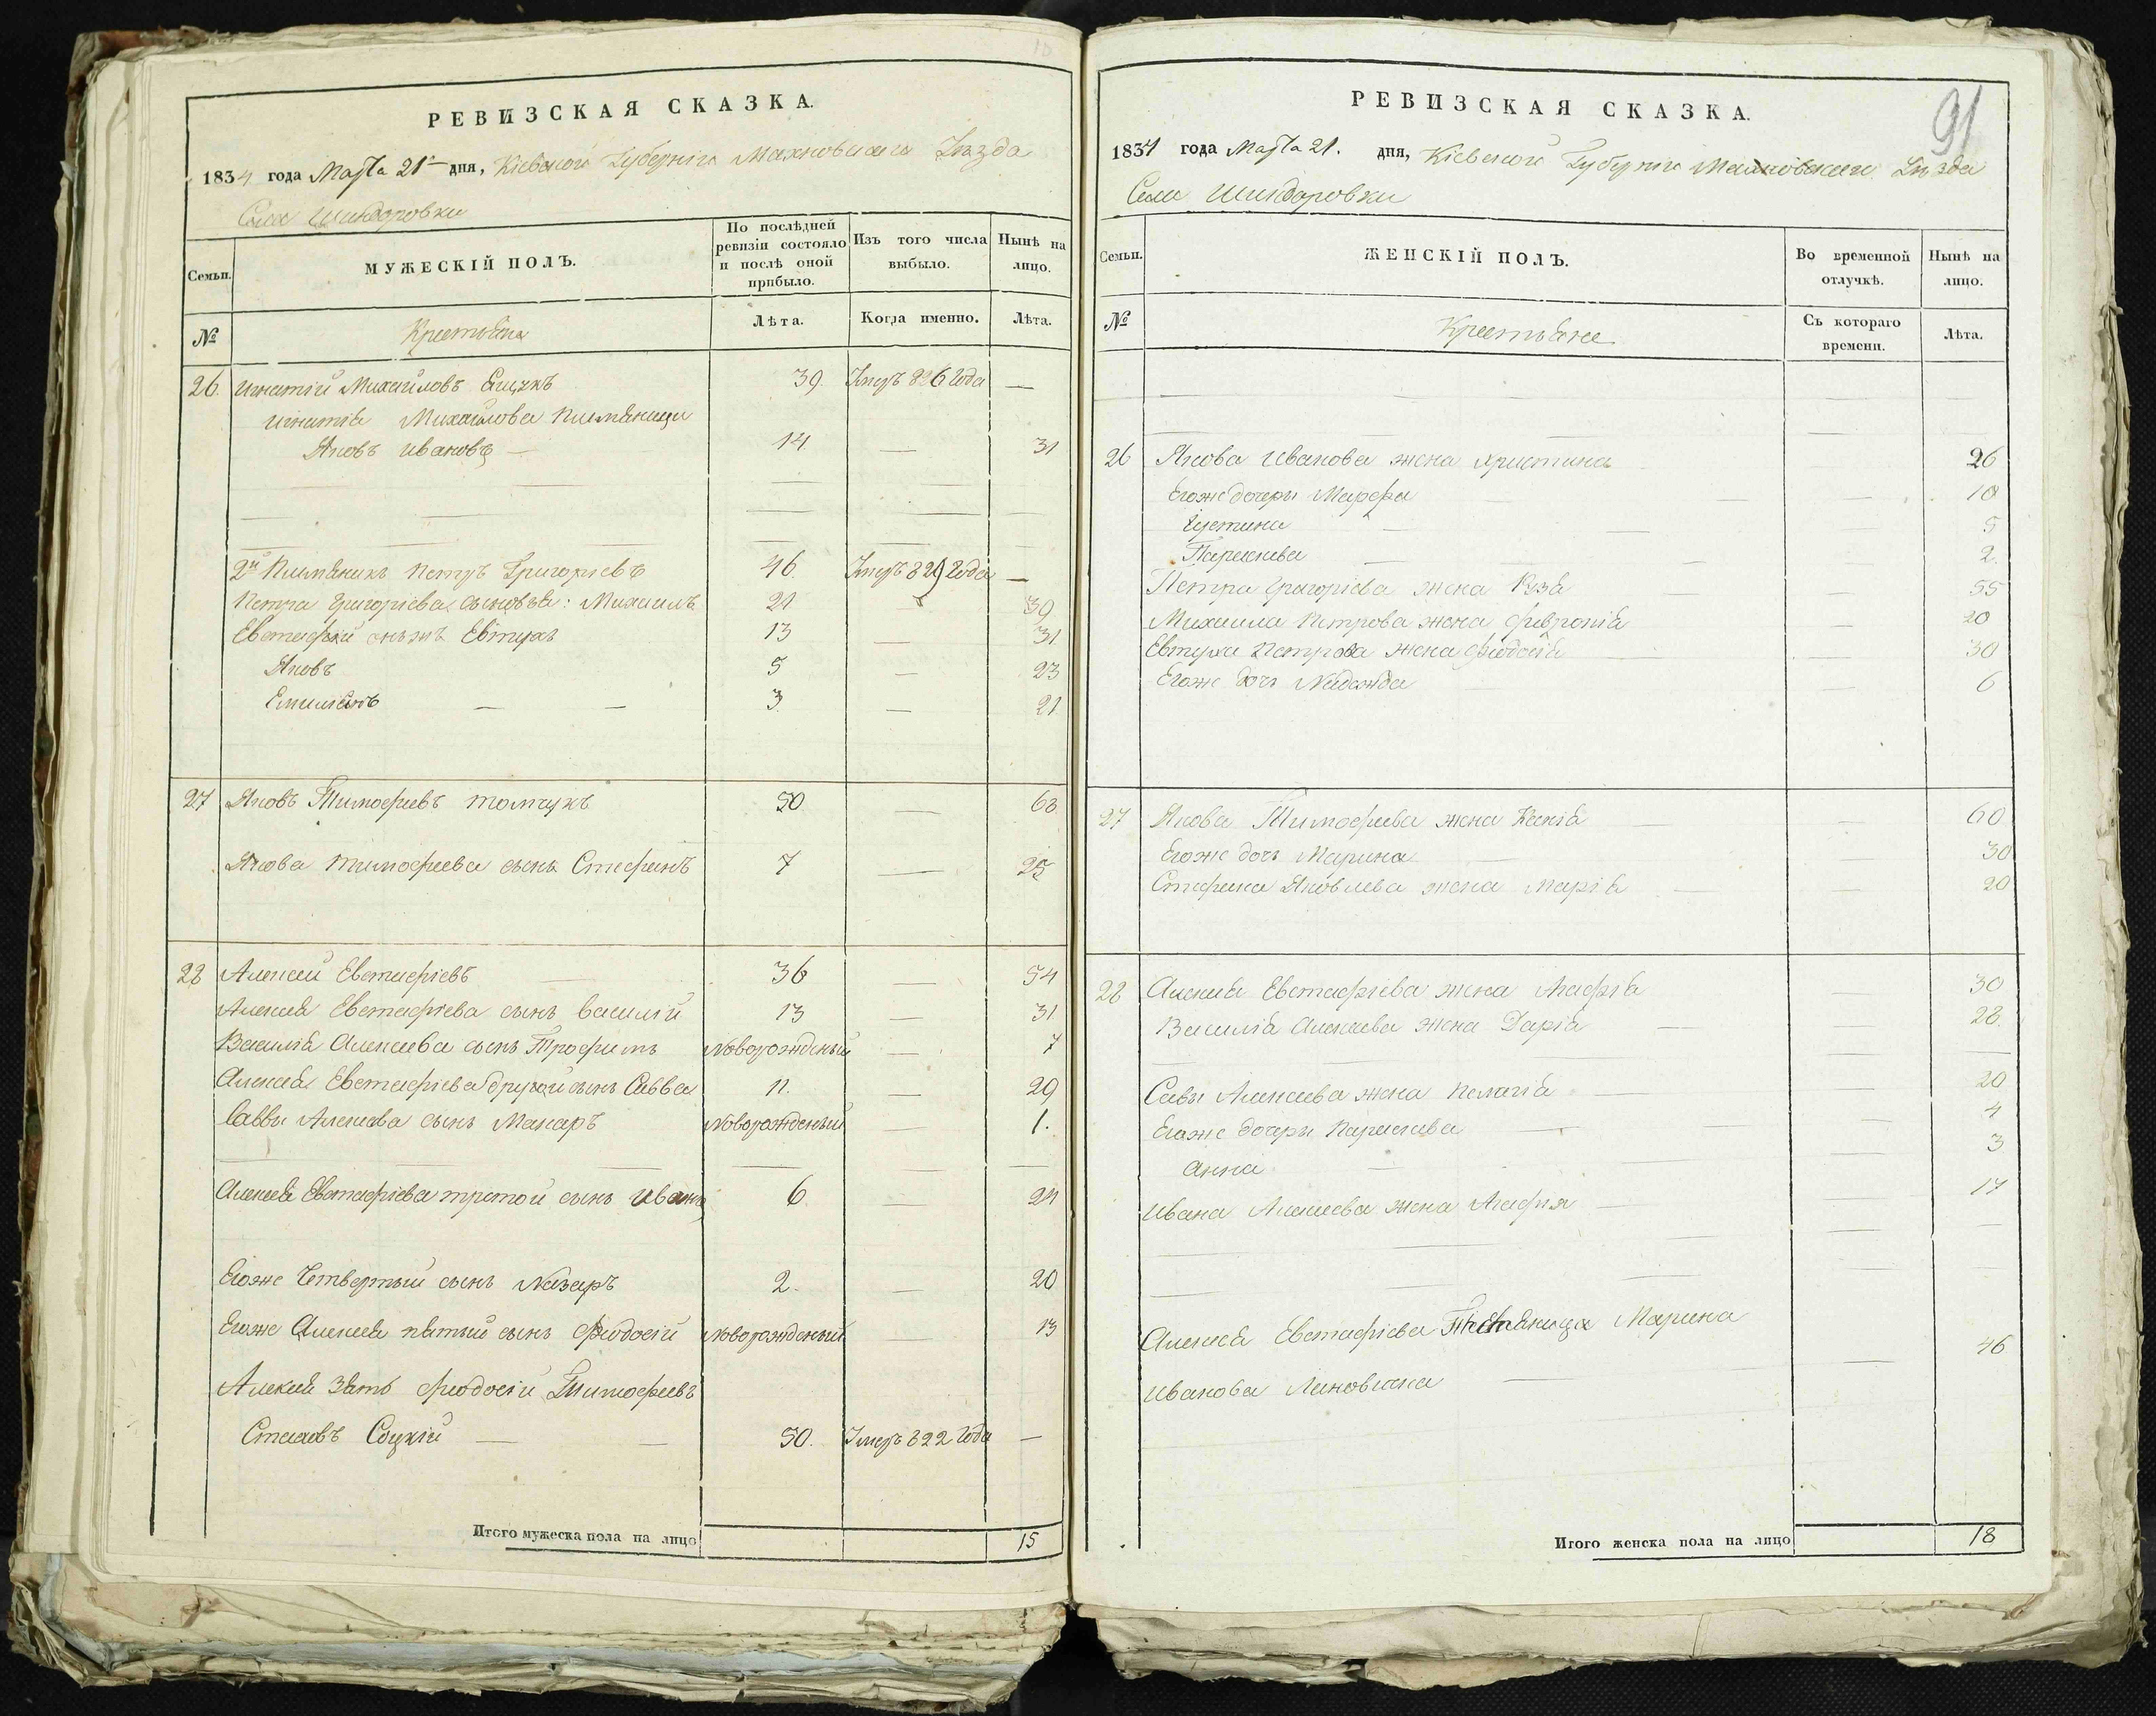 РЕВИЗСКАЯ СКАЗКА.
1834 года Марта 21 дня, Кіевской Губерніи Махновскаго Уѣзда
Села Шендоровки
Семьи.
МУЖЕСКІЙ ПОЛЪ.
По послѣдней ревизіи состояло и послѣ оной прибыло.
Изъ того числа выбыло.
Нынѣ на лицо.
№
Крестьяне
Лѣта.
Когда именно.
Лѣта.
26. Игнатій Михайловъ 39. Умеръ 826 Года —
Игнатія Михайлова племянники
Яковъ Ивановъ — 14. — 31
2й Племяникъ Петръ Григоріевъ 46. Умеръ 829 Года —
Петра Григоріева сыновья: Михаилъ 21 39
Евстафій онъжъ Евтухъ 13 — 31
Яковъ 5 — 23
Емиліянъ — — 3. — 21
27 Яковъ Тимофеевъ Томчукъ 50 — 68
Якова Тимофеева сынъ Стефанъ 7 — 25
28 Алексей Евстафіевъ — 36 — 54
Алексея Евстафіева сынъ Василій 13 — 31
Василія Алексеева сынъ Трофимъ Новорожденый — 7
Алексея Евстафіева другой сынъ Савва 11. — 29
Саввы Алексеева сынъ Макаръ Новорожденый — 1.
Алексея Евстафіева третой сынъ Иванъ 6 — 24
Егоже Четвертый сынъ Назаръ 2. — 20
Егоже Алексея пятый сынъ Феодосій Новорожденый — 13
Алексея Зять Феодосій Тимофеевъ
Соцкій — — 50. Умеръ 822 Года —
Итого мужеска пола на лицо 15
91
РЕВИЗСКАЯ СКАЗКА.
1834 года Марта 21. дня, Кіевской Губерніи Махновскаго Уѣзда
Села Шендоровки
Семьи.
ЖЕНСКІЙ ПОЛЪ.
Во временной отлучкѣ.
Нынѣ на лицо.
№
Крестьяне
Съ котораго времени.
Лѣта.
26 Якова Иванова жена Христина 26
Егоже дочери Марфа — — — 10
Устина — — — 5
Параскева — — — 2.
Петра Григоріева жена — 55
Михаила Петрова жена Февронія — 20
Евтуха Петрова жена Феодосія — — 30
Егоже дочь Надежда — — 6
27 Якова Тимофеева жена Ксенія — — 60
Егоже дочь Марина — — 30
Стефана Яковлева жена Марія — — 20
28 Алексея Евстафіева жена Агафія — 30
Василія Алексеева жена Дарія — — 28.
Савы Алексеева жена Пелагія — — 20
Егоже дочери Параскева — — 4
Анна — — 3
Ивана Алексеева жена Агафия — — 17
Алексея Евстафіева Племяница Марина
Иванова — — 46
Итого женска пола на лицо 18